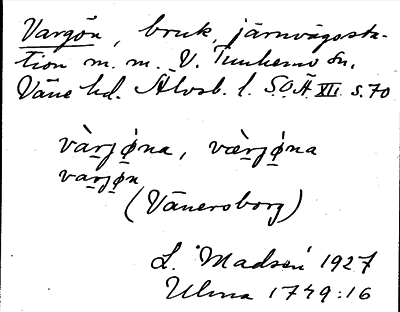 Vargön, bruk, järnvägssta-
tion m. m. V. Tunhems sn,
Väne hd. Älvsb. l. SOÄ XII s. 70
và̱rjǿ̱na, væ̀rjǿ̱na
va̱rjø̱n
(Vänersborg)
L. Madsen 1927
Ulma 1749:16